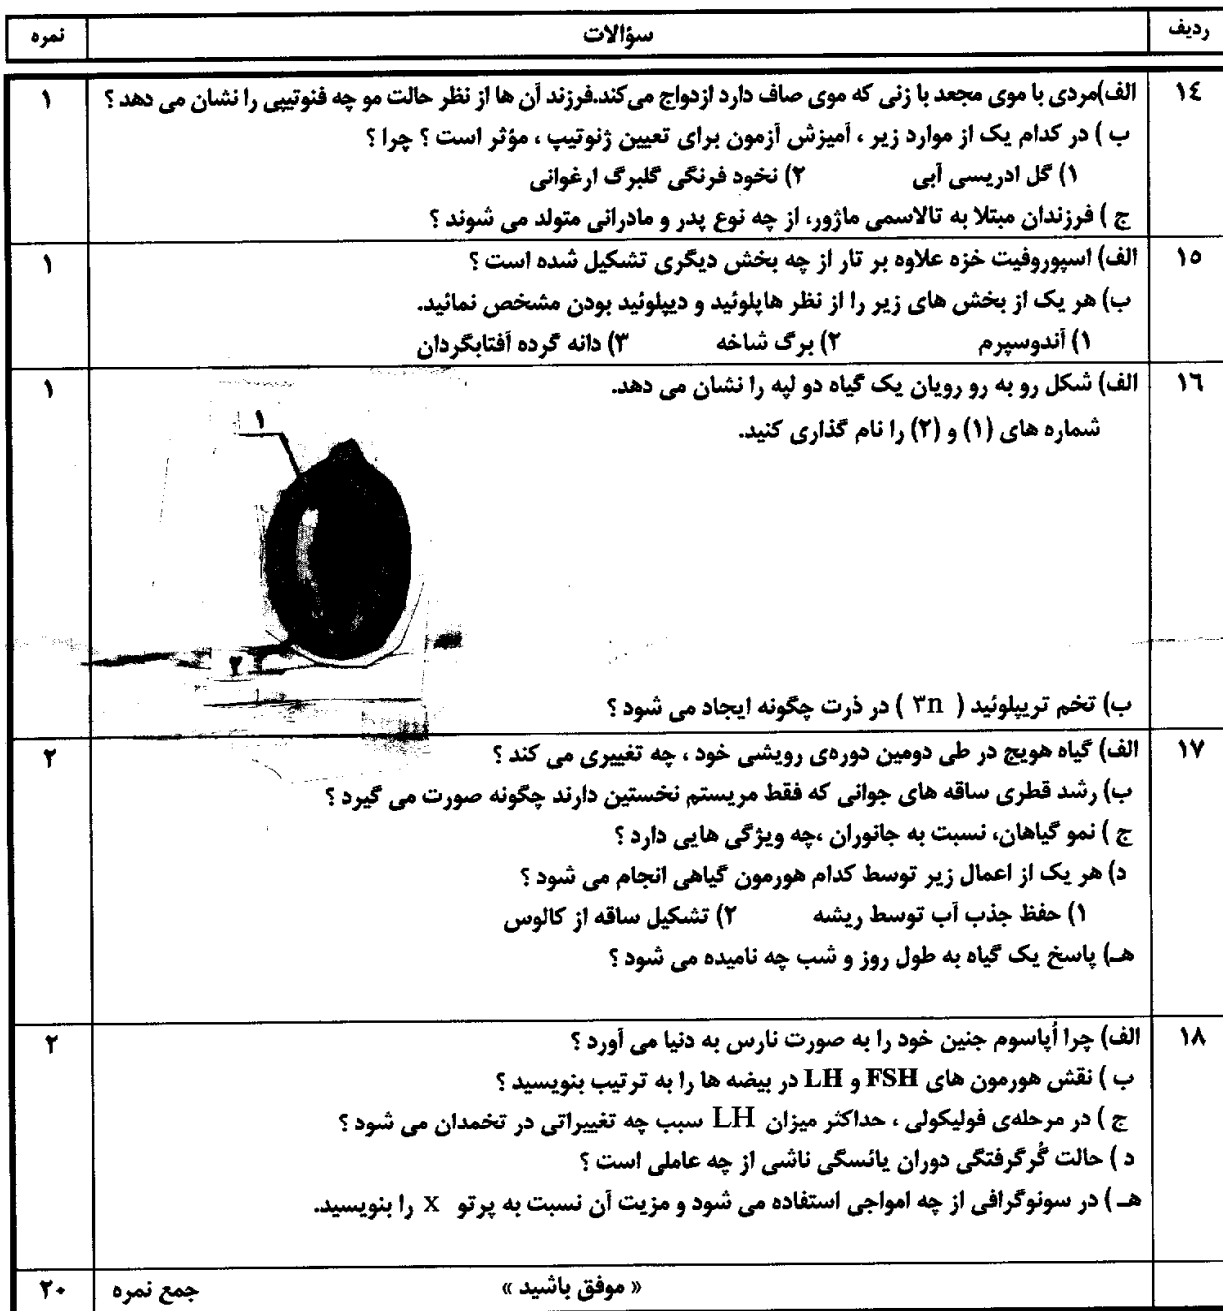 ردیف سؤالات نمره
١٤ الف)مردی با موی مجعد با زنی که موی صاف دارد ازدواج می‌کند.فرزند آن ها از نظر حالت مو چه فنوتیپی را نشان می دهد ؟ ١
ب ) در کدام یک از موارد زیر ، آمیزش آزمون برای تعیین ژنوتیپ ، مؤثر است ؟ چرا ؟
۱) گل ادریسی آبی ۲) نخود فرنگی گلبرگ ارغوانی
ج ) فرزندان مبتلا به تالاسمی ماژور، از چه نوع پدر و مادرانی متولد می شوند ؟
١٥ الف) اسپوروفیت خزه علاوه بر تار از چه بخش دیگری تشکیل شده است ؟ ١
ب) هر یک از بخش های زیر را از نظر هاپلوئید و دیپلوئید بودن مشخص نمائید.
۱) آندوسپرم ۲) برگ شاخه ۳) دانه گرده آفتابگردان
١٦ الف) شکل رو به رو رویان یک گیاه دو لپه را نشان می دهد. ١
شماره های (۱) و (۲) را نام گذاری کنید.
۱
۲
ب) تخم تریپلوئید ( ۳n ) در ذرت چگونه ایجاد می شود ؟
١٧ الف) گیاه هویج در طی دومین دوره‌ی رویشی خود ، چه تغییری می کند ؟ ٢
ب) رشد قطری ساقه های جوانی که فقط مریستم نخستین دارند چگونه صورت می گیرد ؟
ج ) نمو گیاهان، نسبت به جانوران ،چه ویژگی هایی دارد ؟
د) هر یک از اعمال زیر توسط کدام هورمون گیاهی انجام می شود ؟
۱) حفظ جذب آب توسط ریشه ۲) تشکیل ساقه از کالوس
هـ) پاسخ یک گیاه به طول روز و شب چه نامیده می شود ؟
١٨ الف) چرا اُپاسوم جنین خود را به صورت نارس به دنیا می آورد ؟ ٢
ب ) نقش هورمون های FSH و LH در بیضه ها را به ترتیب بنویسید ؟
ج ) در مرحله‌ی فولیکولی ، حداکثر میزان LH سبب چه تغییراتی در تخمدان می شود ؟
د ) حالت گُرگرفتگی دوران یائسگی ناشی از چه عاملی است ؟
هـ ) در سونوگرافی از چه امواجی استفاده می شود و مزیت آن نسبت به پرتو X را بنویسید.
« موفق باشید » جمع نمره ٢٠